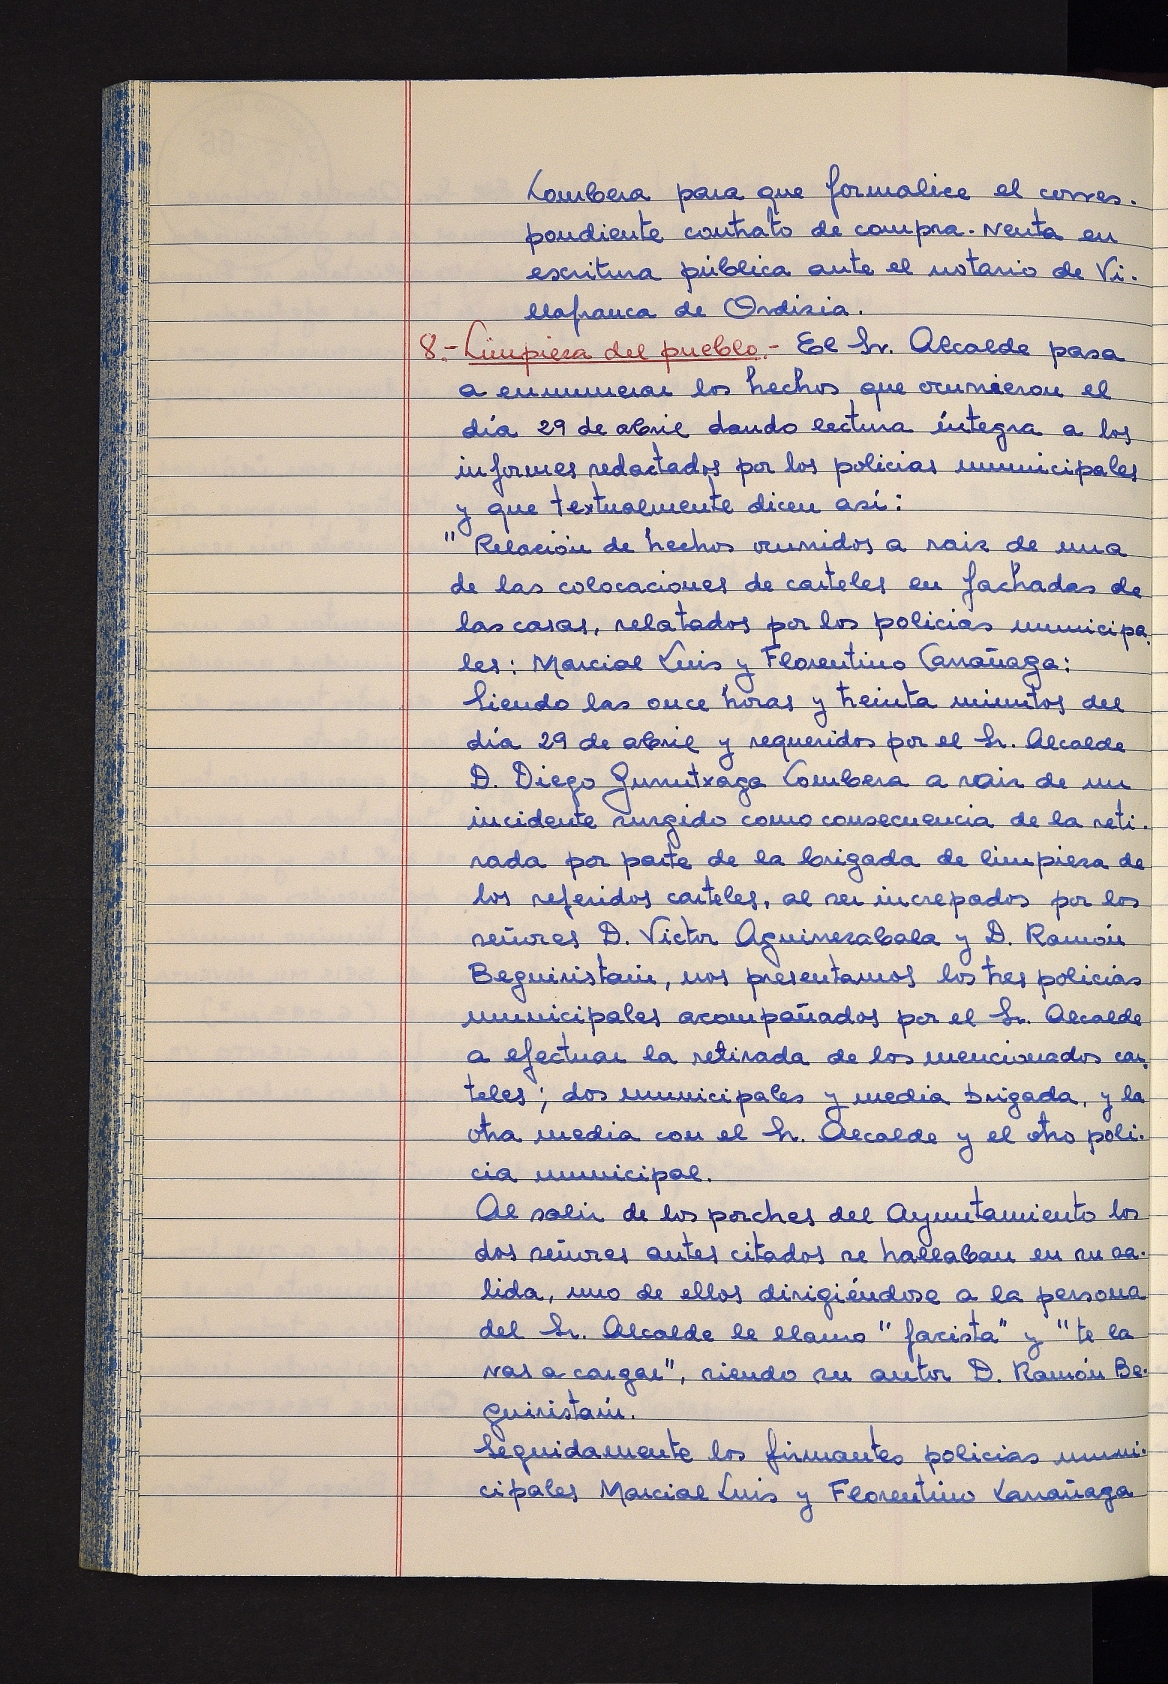 Lombera para que formalice el corres-
pondiente contrato de compra-venta en
escritura pública ante el notario de Vi-
llafranca de Ordizia.
8.- Limpieza del pueblo.- El Sr. Alcalde pasa
a enumerar los hechos que ocurrieron el
día 29 de abril dando lectura íntegra a los
informes redactados por los policias municipales
y que textualmente dicen así:
" Relación de hechos ocurridos a raiz de una
de las colocaciones de carteles en fachadas de
las casas, relatados por los policias municipa-
les: Marcial Luis y Florentino Larrañaga:
Siendo las once horas y treinta minutos del
día 29 de abril y requeridos por el Sr. Alcalde
D. Diego Gurrutxaga Lombera a raiz de un
incidente surgido como consecuencia de la reti-
rada por parte de la brigada de limpieza de
los referidos carteles, al ser increpados por los
señores D. Victor Aguirrezabala y D. Ramón
Beguiristain, nos presentamos los tres policias
municipales acompañados por el Sr. Alcalde
a efectuar la retirada de los mencionados car-
teles; dos municipales y media brigada, y la
otra media con el Sr. Alcalde y el otro poli-
cia municipal.
Al salir de los porches del Ayuntamiento los
dos señores antes citados se hallaban en su sa-
lida, uno de ellos dirigiéndose a la persona
del Sr. Alcalde le llamo "facista" y "te la
vas a cargar", siendo su autor D. Ramón Be-
guiristain.
Seguidamente los firmantes policias muni-
cipales Marcial Luis y Florentino Larrañaga